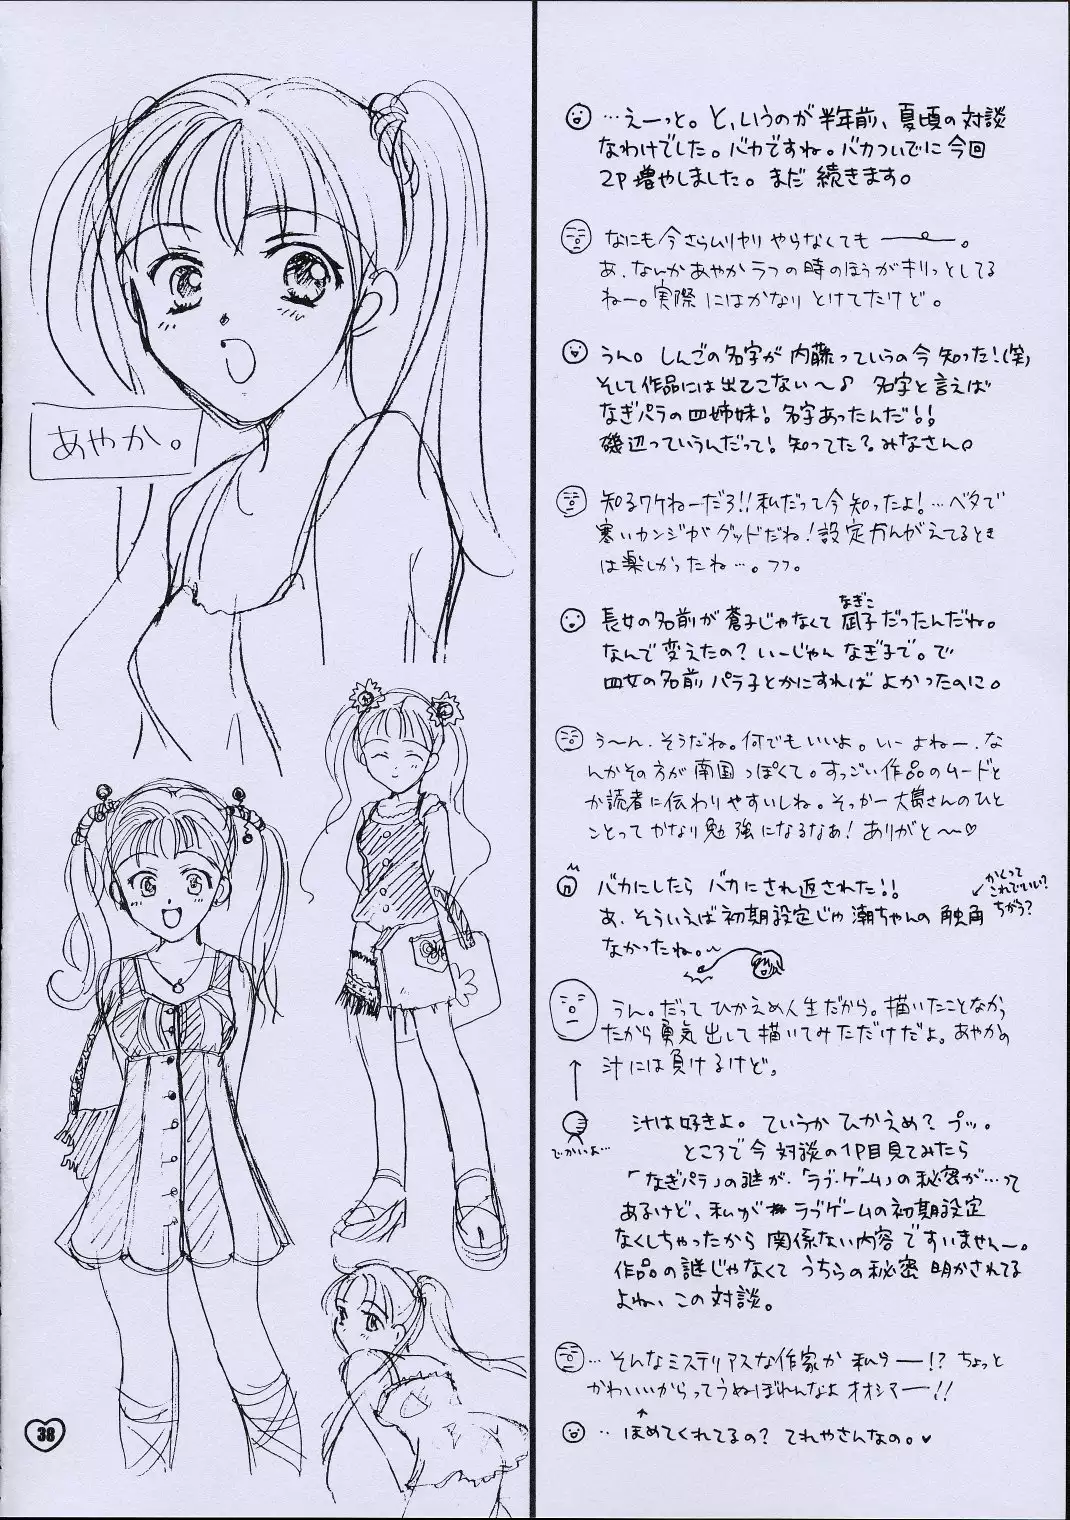 あやか。
38
…えーっと。と、いうのが半年前、夏頃の対談
なわけでした。バカですね。バカついでに今回
2P増やしました。まだ続きます。
なにも今さらムリヤリやらなくても――。
あ、なんかあやかラフの時のほうがキリっとしてる
ねー。実際にはかなりとけてたけど。
うん。しんごの名字が内藤っていうの今知った!(笑)
そして作品には出てこない〜♪ 名字と言えば
なぎパラの四姉妹!名字あったんだ!!
磯辺っていうんだって!知ってた?みなさん。
知るワケねーだろ!!私だって今知ったよ!…ベタで
寒いカンジがグッドだね!設定かんがえてるとき
は楽しかったね…。フフ。
長女の名前が蒼子じゃなくて凪子だったんだね。
なぎこ
なんで変えたの?いーじゃんなぎ子で。で
四女の名前パラ子とかにすればよかったのに。
う〜ん、そうだね。何でもいいよ。いーよねー、な
んかその方が南国っぽくて。すっごい作品のムードと
か読者に伝わりやすいしね。そっかー大島さんのひと
ことってかなり勉強になるなあ!ありがと〜♡
バカにしたらバカにされ返された!!
あ、そういえば初期設定じゃ潮ちゃんの触角
なかったね。
かくって
これでいい?
ちがう?
うん。だってひかえめ人生だから。描いたことなかっ
たから勇気出して描いてみただけだよ。あやかの
汁には負けるけど。
でかいよ…
汁は好きよ。ていうかひかえめ?プッ。
ところで今対談の1P目見てみたら
「なぎパラ」の謎が、「ラブ・ゲーム」の秘密が…って
あるけど、私がラブゲームの初期設定
なくしちゃったから関係ない内容ですいませんー。
作品の謎じゃなくてうちらの秘密明かされてる
よね、この対談。
…そんなミステリアスな作家か私らー!?ちょっと
かわいいからってうぬぼれんなよオオシマー!!
…ほめてくれてるの?てれやさんなの。♥